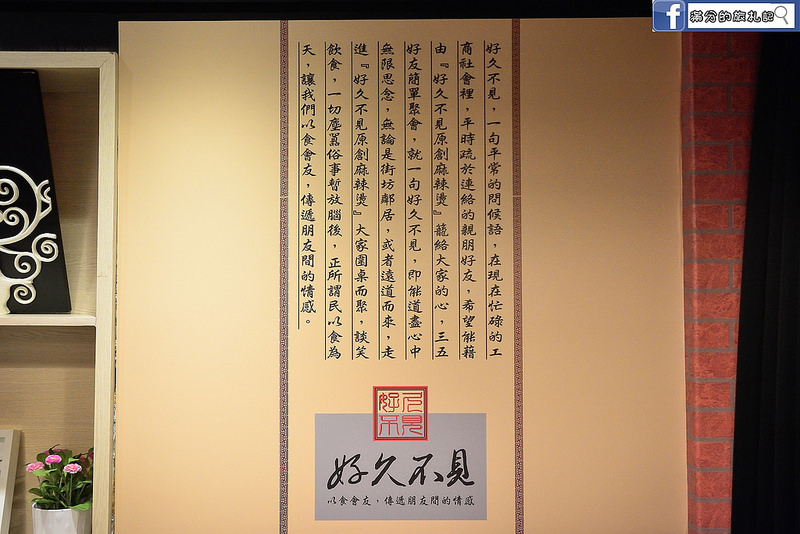 滿分的旅札記
好久不見，一句平常的問候語，在現在忙碌的工
商社會裡，平時疏於連絡的親朋好友，希望能藉
由『好久不見原創麻辣燙』籠絡大家的心，三五
好友簡單聚會，就一句好久不見，即能道盡心中
無限思念，無論是街坊鄰居，或者遠道而來，走
進『好久不見原創麻辣燙』大家圍桌而聚，談笑
飲食，一切塵囂俗事暫放腦後，正所謂民以食為
天，讓我們以食會友，傳遞朋友間的情感。
好久不見
好久不見
以食會友，傳遞朋友間的情感